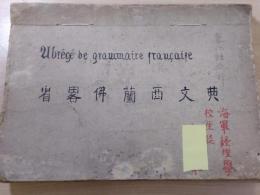 Abrégé de grammaire française
省畧佛蘭西文典
海軍経理學
校生徒